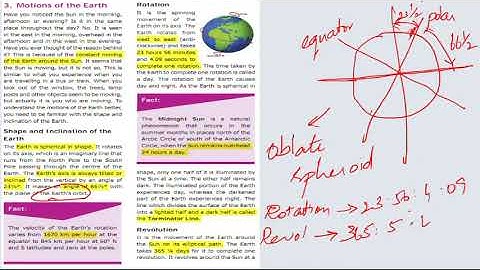 3. Motions of the Earth
Have you noticed the Sun in the morning,
afternoon or evening? Is it in the same
place throughout the day? No. It is seen
in the east in the morning, overhead in the
afternoon and in the west in the evening.
Have you ever thought of the reason behind
it? This is because of the constant moving
of the Earth around the Sun. It seems
that the Sun is moving, but it is not. This is
similar to what you experience when you
are travelling in a bus or train. When you
look out of the window, the trees, lamp
posts and other objects seem to be moving,
but actually it is you who are moving. To
understand the motions of the Earth better,
you need to be familiar with the shape and
inclination of the Earth.
Shape and Inclination of the
Earth
The Earth is spherical in shape. It rotates
on its axis, which is an imaginary line that
runs from the North Pole to the South
Pole passing through the centre of the
Earth. The Earth's axis is always tilted or
inclined from the vertical by an angle of
23½°. It makes an angle of 66½° with
the plane of the Earth's orbit.
Fact:
The velocity of the Earth's rotation
varies from 1670 km per hour at the
equator to 845 km per hour at 60° N
and S latitudes and zero at the poles.
Rotation
It is the spinning
movement of the
Earth on its axis. The
Earth rotates from
west to east (anti-
clockwise) and takes
23 hours 56 minutes
and 4.09 seconds to
complete one rotation. The time taken by
the Earth to complete one rotation is called
a day. The rotation of the Earth causes
day and night. As the Earth is spherical in
Fact:
The Midnight Sun is a natural
phenomenon that occurs in the
summer months in places north of the
Arctic Circle or south of the Antarctic
Circle, when the Sun remains overhead
24 hours a day.
shape, only one half of it is illuminated by
the Sun at a time. The other half remains
dark. The illuminated portion of the Earth
experiences day, whereas the darkened
part of the Earth experiences night. The
line which divides the surface of the Earth
into a lighted half and a dark half is called
the Terminator Line.
Revolution
It is the movement of the Earth around
the Sun on its elliptical path. The Earth
takes 365 ¼ days for it to complete one
revolution. It revolves around the Sun at a
equator
23½
polar
66½
Oblate
spheroid
Rotation → 23:56:4.09
Revol → 365:5: